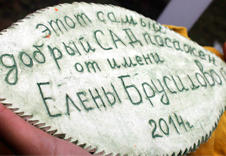 этот самый
добрый САД посажен
от имени
Елены Брусиловой
2014г.